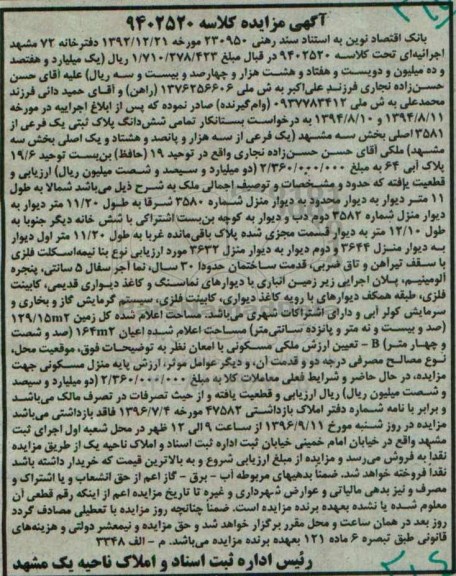 آگهی مزایده کلاسه ۹۴۰۲۵۲۰
بانک اقتصاد نوین به استناد سند رهنی ۲۳۰۹۵۰ مورخه ۱۳۹۲/۱۲/۲۱ دفترخانه ۷۲ مشهد
اجرائیه‌ای تحت کلاسه ۹۴۰۲۵۲۰ در قبال مبلغ ۱/۷۱۰/۲۷۸/۴۲۳ ریال (یک میلیارد و هفتصد
و ده میلیون و دویست و هفتاد و هشت هزار و چهارصد و بیست و سه ریال) علیه آقای حسن
حسن‌زاده نجاری فرزند علی‌اکبر به ش ملی ۱۳۷۶۲۵۶۶۰۶ (راهن) و آقای حمید دانی فرزند
محمدعلی به ش ملی ۰۹۳۷۷۸۳۴۱۲ (وام‌گیرنده) صادر نموده که پس از ابلاغ اجراییه در مورخه
۱۳۹۴/۸/۱۱ و ۱۳۹۴/۸/۱۰ به درخواست بستانکار تمامی شش‌دانگ پلاک ثبتی یک فرعی از
۳۵۸۱ اصلی بخش سه مشهد (یک فرعی از سه هزار و پانصد و هشتاد و یک اصلی بخش سه
مشهد) ملکی آقای حسن حسن‌زاده نجاری واقع در توحید ۱۹ (حافظ) بن‌بست توحید ۱۹/۶
پلاک آبی ۶۴ به مبلغ ۲/۳۶۰/۰۰۰/۰۰۰ (دو میلیارد و سیصد و شصت میلیون ریال) ارزیابی و
قطعیت یافته که حدود و مشخصات و توصیف اجمالی ملک به شرح ذیل می‌باشد شمالا به طول
۱۱ متر دیوار به دیوار محدود به دیوار منزل شماره ۳۵۸۰ شرقا به طول ۱۱/۲۰ متر دیوار به
دیوار منزل شماره ۳۵۸۲ دوم دب و دیوار به کوچه بن‌بست اشتراکی با شش خانه دیگر جنوبا به
طول ۱۲/۱۰ متر به دیوار قسمت مجزی شده پلاک باقی‌مانده غربا به طول ۱۱/۲۰ متر اول دیوار
به دیوار منزل ۳۶۴۴ و دوم دیوار به دیوار منزل ۳۶۳۲ مورد ارزیابی نوع بنا نیمه‌اسکلت فلزی
با سقف تیرآهن و تاق ضربی، قدمت ساختمان حدودا ۳۰ سال، نما آجر سفال ۵ سانتی، پنجره
آلومینیم، پلان اجرایی زیر زمین انباری با دیوارهای نماسنگ و کاغذ دیواری قدیمی، کابینت
فلزی، طبقه همکف دیوارهای با رویه کاغذ دیواری، کابینت فلزی، سیستم گرمایش گاز و بخاری و
سرمایش کولر آبی و دارای اشتراکات شهری می‌باشد. مساحت اعلام شده کل زمین ۱۲۹/۱۵m2
(صد و بیست و نه متر و پانزده سانتی‌متر) مساحت اعلام شده اعیان ۱۶۴m2 (صد و شصت
و چهار متر) B – تعیین ارزش ملکی مسکونی با امعان نظر به توضیحات فوق، موقعیت محل،
نوع مصالح مصرفی درجه دو و قدمت آن، و دیگر عوامل موثر، ارزش پایه منزل مسکونی جهت
مزایده، در حال حاضر و شرایط فعلی معاملات کلا به مبلغ ۲/۳۶۰/۰۰۰/۰۰۰ (دو میلیارد و سیصد
و شصت میلیون ریال) ریال ارزیابی و قطعیت یافته و از حیث تصرفات در تصرف مالک می‌باشد
و برابر با نامه شماره دفتر املاک بازداشتی ۴۷۵۸۲ مورخه ۱۳۹۶/۷/۴ فاقد بازداشتی می‌باشد
مزایده در روز شنبه مورخ ۱۳۹۶/۹/۱۱ از ساعت ۹ الی ۱۲ ظهر در محل شعبه اول اجرای ثبت
مشهد واقع در خیابان امام خمینی خیابان ثبت اداره ثبت اسناد و املاک ناحیه یک از طریق مزایده
نقدا به فروش می‌رسد و مزایده از مبلغ ارزیابی شروع و به بالاترین قیمت که خریدار داشته باشد
نقدا فروخته خواهد شد. ضمنا بدهیهای مربوطه آب – برق – گاز اعم از حق انشعاب و یا اشتراک و
مصرف و نیز بدهی مالیاتی و عوارض شهرداری و غیره تا تاریخ مزایده اعم از اینکه رقم قطعی آن
معلوم شده یا نشده بعهده برنده مزایده است. ضمنا چنانچه روز مزایده با تعطیلی مصادف گردد
روز بعد در همان ساعت و محل مقرر برگزار خواهد شد و حق مزایده و نیمعشر دولتی و هزینه‌های
قانونی طبق تبصره ۶ ماده ۱۲۱ بعهده برنده مزایده می‌باشد. م – الف ۳۳۴۸
رئیس اداره ثبت اسناد و املاک ناحیه یک مشهد